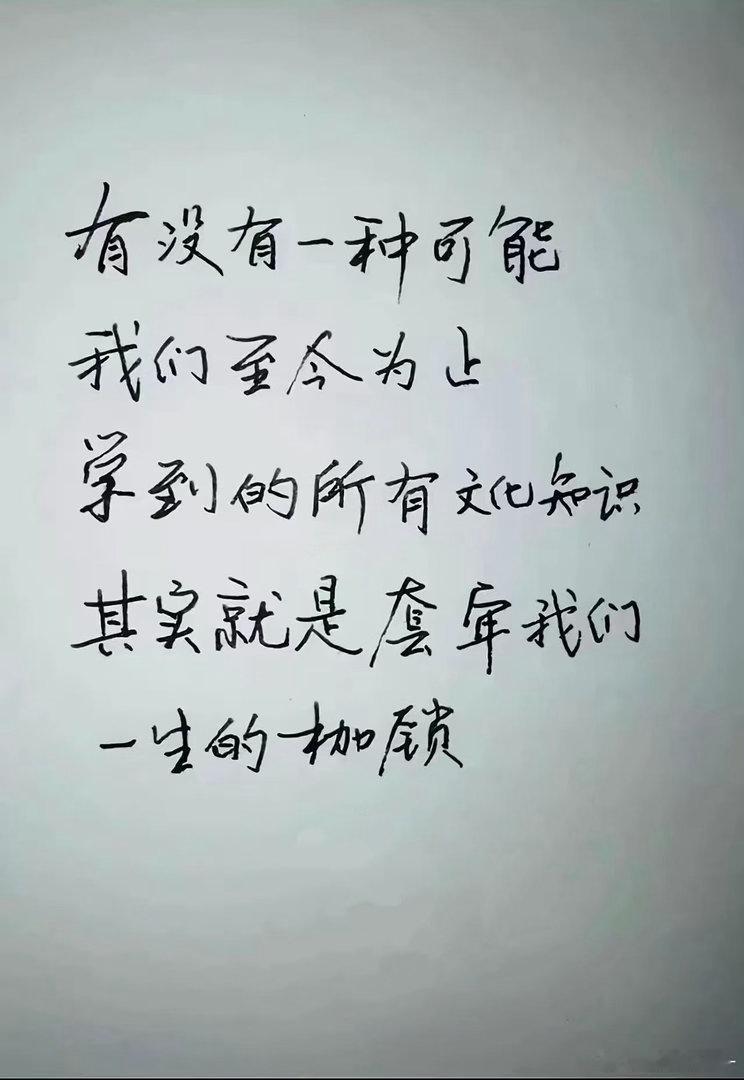 有没有一种可能
我们至今为止
学到的所有文化知识
其实就是套牢我们
一生的枷锁